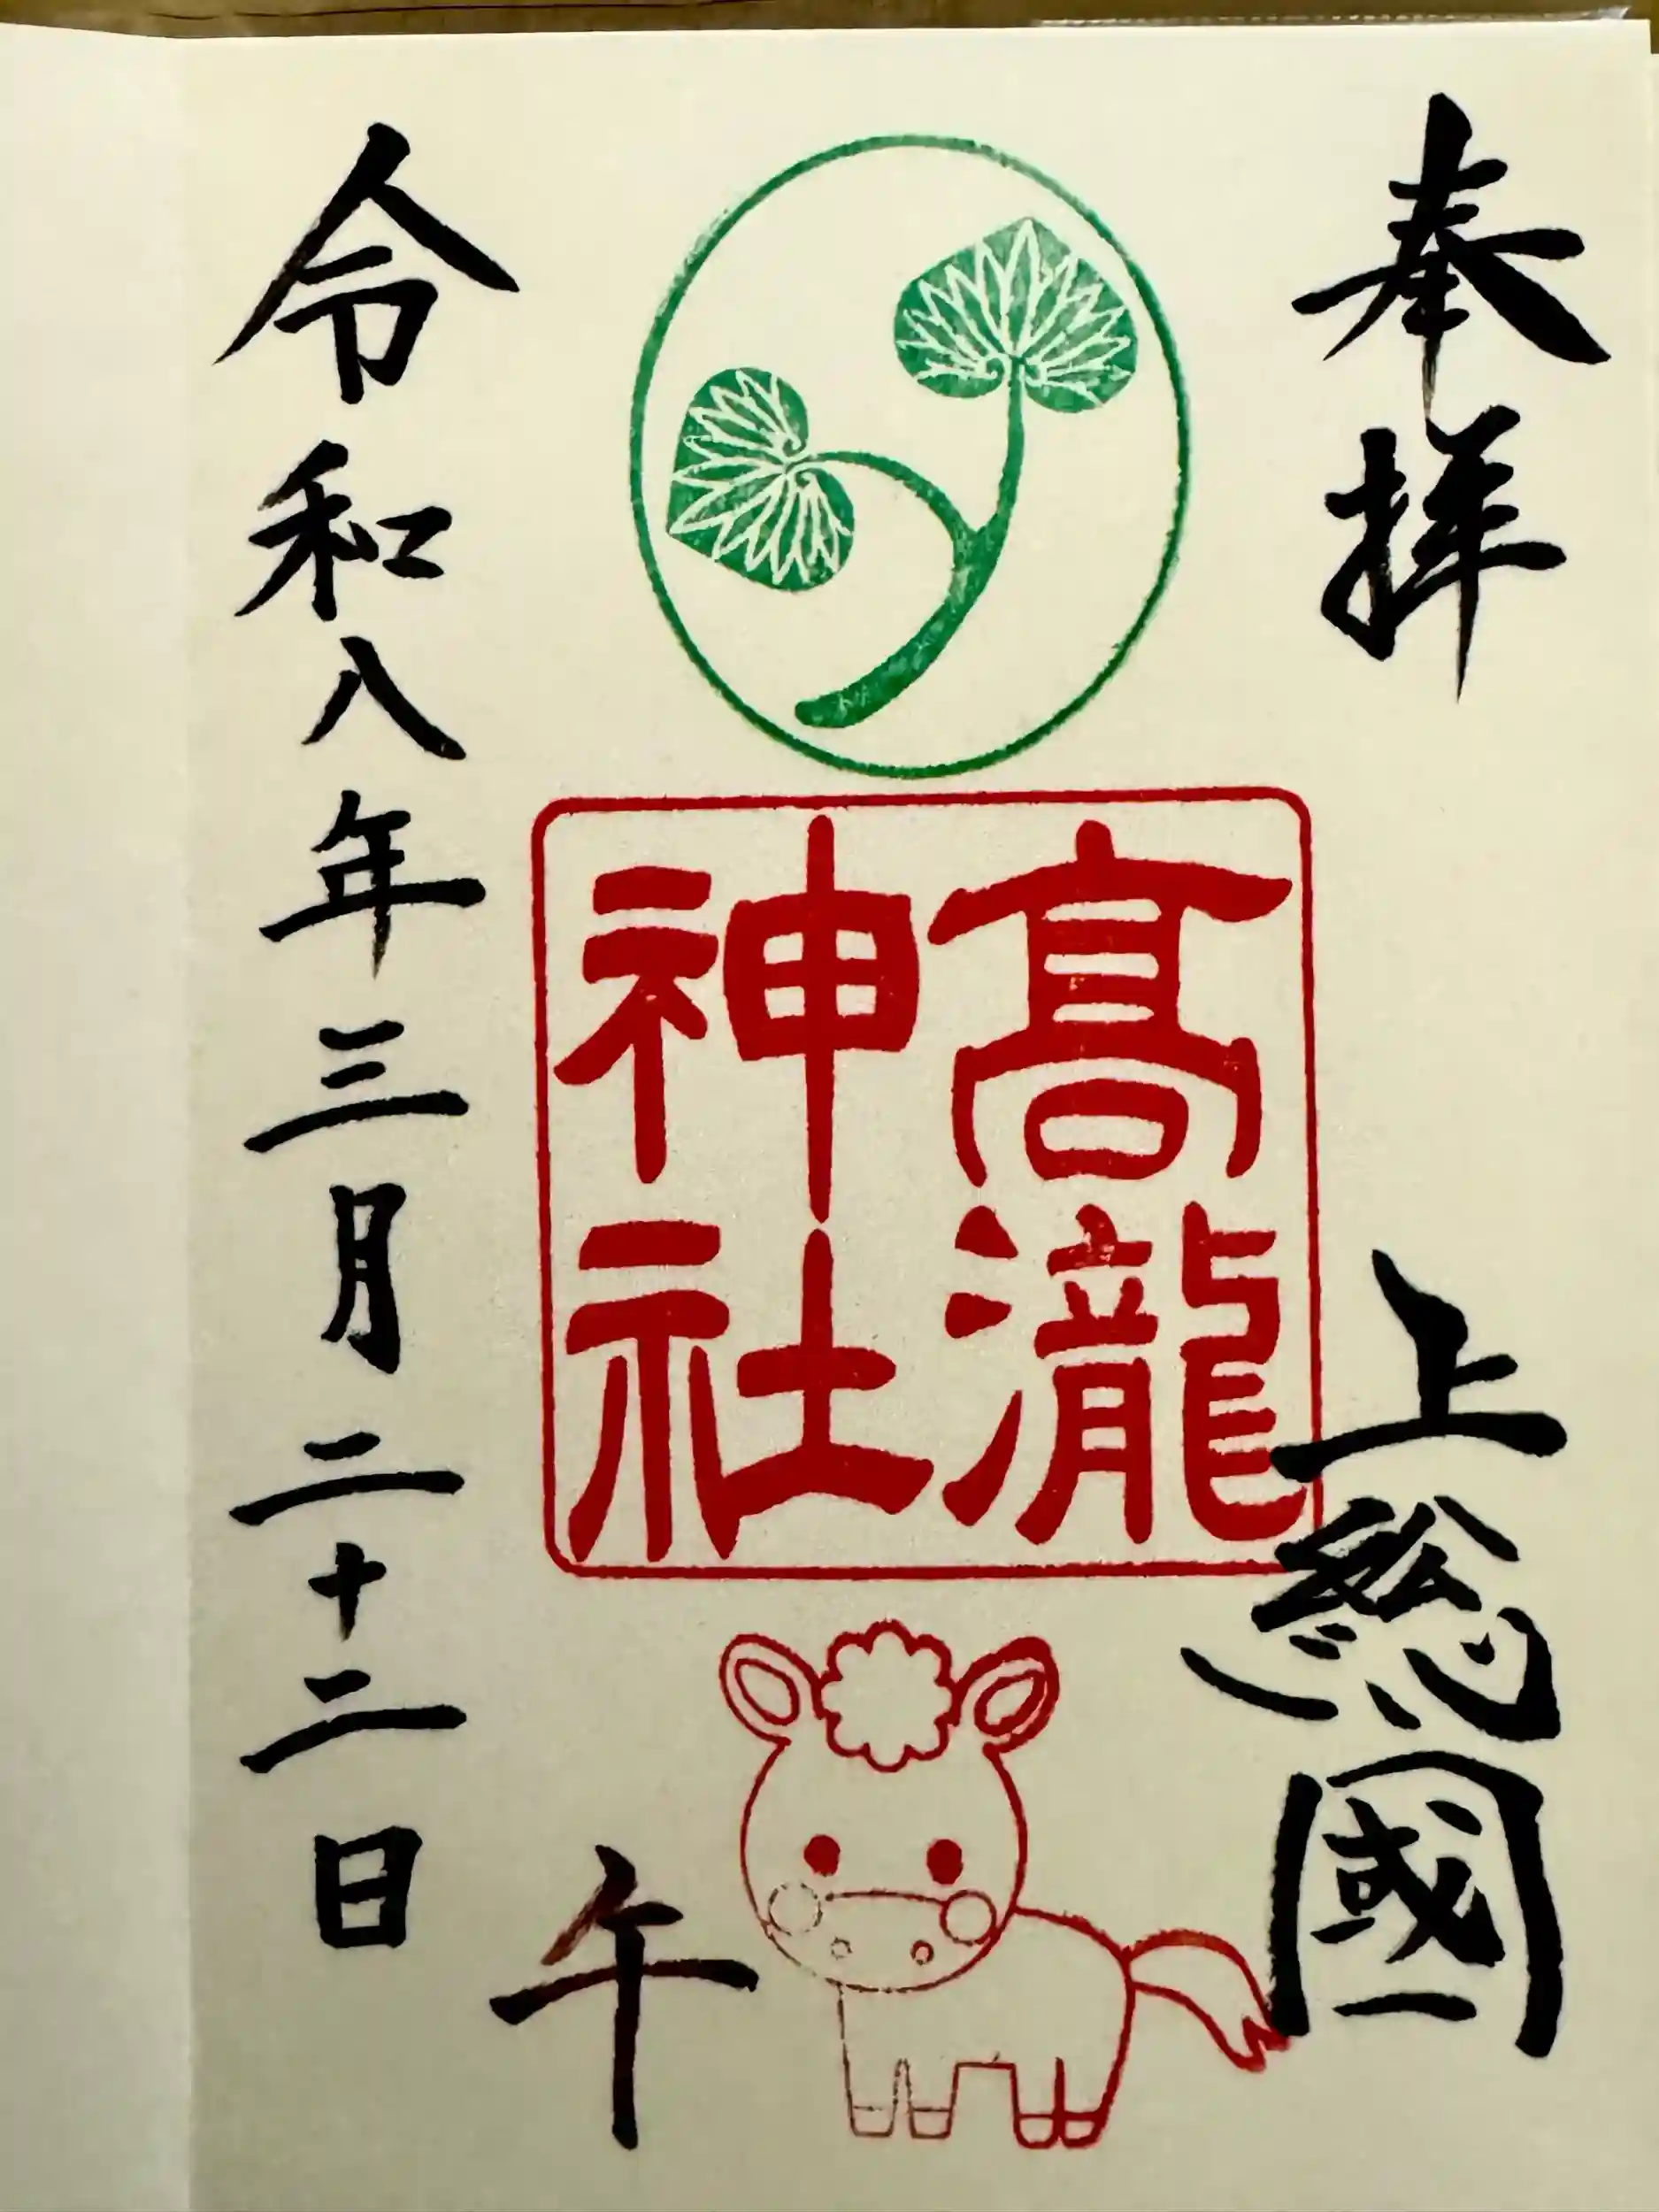 奉拝
上総國一
高瀧
神社
午
令和八年三月二十二日